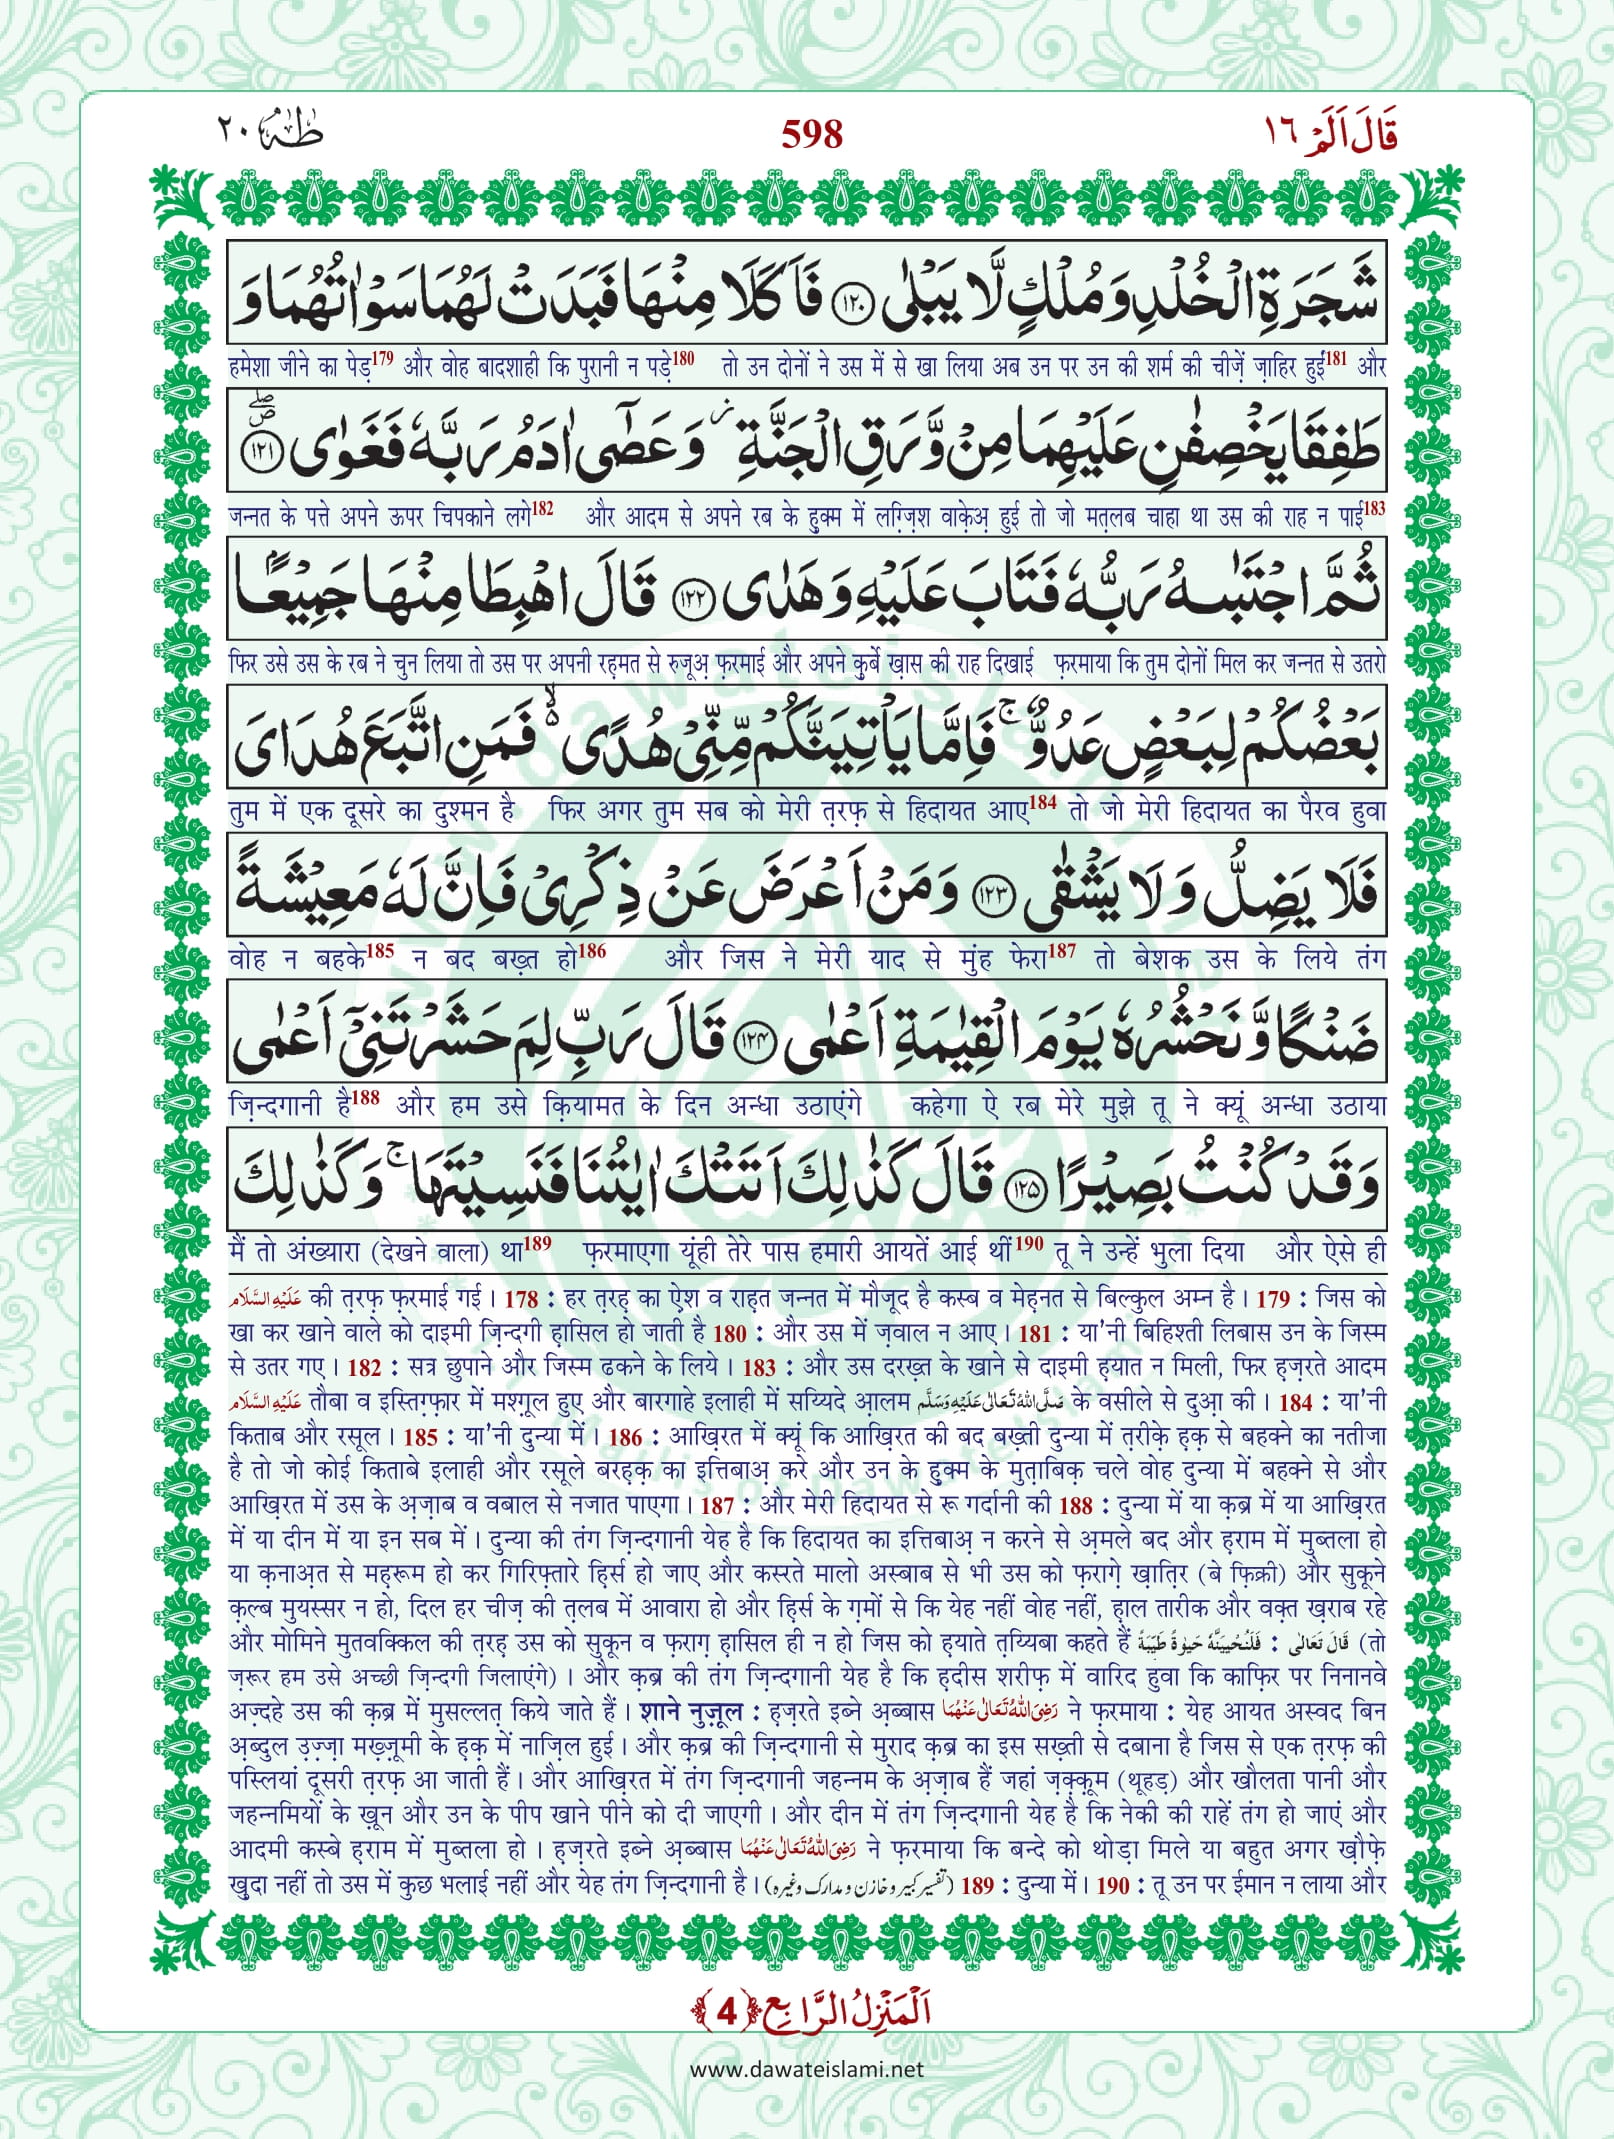 قَالَ اَلَمْ ١٦
598
طٰهٰ ٢٠
شَجَرَةِ الْخُلْدِ وَ مُلْكٍ لَّا یَبْلٰى ﴿۱۲۰﴾ فَاَكَلَا مِنْهَا فَبَدَتْ لَهُمَا سَوْاٰتُهُمَا وَ
हमेशा जीने का पेड़179 और वोह बादशाही कि पुरानी न पड़े180 तो उन दोनों ने उस में से खा लिया अब उन पर उन की शर्म की चीज़ें ज़ाहिर हुईं181 और
طَفِقَا یَخْصِفٰنِ عَلَیْهِمَا مِنْ وَّرَقِ الْجَنَّةِ ٘ وَ عَصٰۤى اٰدَمُ رَبَّهٗ فَغَوٰى ﴿۱۲۱﴾
जन्नत के पत्ते अपने ऊपर चिपकाने लगे182 और आदम से अपने रब के हुक्म में लग़्ज़िश वाक़ेअ़ हुई तो जो मत़लब चाहा था उस की राह न पाई183
ثُمَّ اجْتَبٰىهُ رَبُّهٗ فَتَابَ عَلَیْهِ وَ هَدٰى ﴿۱۲۲﴾ قَالَ اهْبِطَا مِنْهَا جَمِیْعًۢا
फिर उसे उस के रब ने चुन लिया तो उस पर अपनी रह़मत से रुजूअ़ फ़रमाई और अपने क़ुर्बे ख़ास की राह दिखाई फ़रमाया कि तुम दोनों मिल कर जन्नत से उतरो
بَعْضُكُمْ لِبَعْضٍ عَدُوٌّ ۚ فَاِمَّا یَاْتِیَنَّكُمْ مِّنِّیْ هُدًى ۙ فَمَنِ اتَّبَعَ هُدَایَ
तुम में एक दूसरे का दुश्मन है फिर अगर तुम सब को मेरी त़रफ़ से हिदायत आए184 तो जो मेरी हिदायत का पैरव हुवा
فَلَا یَضِلُّ وَ لَا یَشْقٰى ﴿۱۲۳﴾ وَ مَنْ اَعْرَضَ عَنْ ذِكْرِیْ فَاِنَّ لَهٗ مَعِیْشَةً
वोह न बहके185 न बद बख़्त हो186 और जिस ने मेरी याद से मुंह फेरा187 तो बेशक उस के लिये तंग
ضَنْكًا وَّ نَحْشُرُهٗ یَوْمَ الْقِیٰمَةِ اَعْمٰى ﴿۱۲۴﴾ قَالَ رَبِّ لِمَ حَشَرْتَنِیْۤ اَعْمٰى
ज़िन्दगानी है188 और हम उसे क़ियामत के दिन अन्धा उठाएंगे कहेगा ऐ रब मेरे मुझे तू ने क्यूं अन्धा उठाया
وَ قَدْ كُنْتُ بَصِیْرًا ﴿۱۲۵﴾ قَالَ كَذٰلِكَ اَتَتْكَ اٰیٰتُنَا فَنَسِیْتَهَا ۚ وَ كَذٰلِكَ
मैं तो अंख्यारा (देखने वाला) था189 फ़रमाएगा यूंही तेरे पास हमारी आयतें आई थीं190 तू ने उन्हें भुला दिया और ऐसे ही
عَلَیْهِ السَّلَام की त़रफ़ फ़रमाई गई। 178 : हर त़रह़ का ऐश व राह़त जन्नत में मौजूद है कस्ब व मेह़नत से बिल्कुल अम्न है। 179 : जिस को
खा कर खाने वाले को दाइमी ज़िन्दगी ह़ासिल हो जाती है 180 : और उस में ज़वाल न आए। 181 : या'नी बिहिश्ती लिबास उन के जिस्म
से उतर गए। 182 : सत्र छुपाने और जिस्म ढकने के लिये। 183 : और उस दरख़्त के खाने से दाइमी ह़यात न मिली, फिर ह़ज़रते आदम
عَلَیْهِ السَّلَام तौबा व इस्तिग़्फ़ार में मश्ग़ूल हुए और बारगाहे इलाही में सय्यिदे आ़लम صَلَّى اللهُ تَعَالٰى عَلَیْهِ وَسَلَّم के वसीले से दुआ़ की। 184 : या'नी
किताब और रसूल। 185 : या'नी दुन्या में। 186 : आख़िरत में क्यूं कि आख़िरत की बद बख़्ती दुन्या में त़रीक़े ह़क़ से बहकने का नतीजा
है तो जो कोई किताबे इलाही और रसूले बरह़क़ का इत्तिबाअ़ करे और उन के हुक्म के मुत़ाबिक़ चले वोह दुन्या में बहक्ने से और
आख़िरत में उस के अ़ज़ाब व वबाल से नजात पाएगा। 187 : और मेरी हिदायत से रू गर्दानी की 188 : दुन्या में या क़ब्र में या आख़िरत
में या दीन में या इन सब में। दुन्या की तंग ज़िन्दगानी येह है कि हिदायत का इत्तिबाअ़ न करने से अ़मले बद और ह़राम में मुब्तला हो
या क़नाअ़त से मह़रूम हो कर गिरिफ़्तारे ह़िर्स हो जाए और कस्रते मालो अस्बाब से भी उस को फ़राग़े ख़ात़िर (बे फ़िक्री) और सुकूने
क़ल्ब मुयस्सर न हो, दिल हर चीज़ की त़लब में आवारा हो और ह़िर्स के ग़मों से कि येह नहीं वोह नहीं, ह़ाल तारीक और वक़्त ख़राब रहे
और मोमिने मुतवक्किल की त़रह़ उस को सुकून व फ़राग़ ह़ासिल ही न हो जिस को ह़याते त़य्यिबा कहते हैं قَالَ تَعَالٰی : فَلَنُحْیِیَنَّهٗ حَیٰوةً طَیِّبَةً (तो
ज़रूर हम उसे अच्छी ज़िन्दगी जिलाएंगे)। और क़ब्र की तंग ज़िन्दगानी येह है कि ह़दीस शरीफ़ में वारिद हुवा कि काफ़िर पर निनानवे
अज़्दहे उस की क़ब्र में मुसल्लत़ किये जाते हैं। शाने नुज़ूल : ह़ज़रते इब्ने अ़ब्बास رَضِیَ اللهُ تَعَالٰى عَنْهُمَا ने फ़रमाया : येह आयत अस्वद बिन
अ़ब्दुल उ़ज़्ज़ा मख़्ज़ूमी के ह़क़ में नाज़िल हुई। और क़ब्र की ज़िन्दगानी से मुराद क़ब्र का इस सख़्ती से दबाना है जिस से एक त़रफ़ की
पस्लियां दूसरी त़रफ़ आ जाती हैं। और आख़िरत में तंग ज़िन्दगानी जहन्नम के अ़ज़ाब हैं जहां ज़क़्क़ूम (थूहड़) और खौलता पानी और
जहन्नमियों के ख़ून और उन के पीप खाने पीने को दी जाएगी। और दीन में तंग ज़िन्दगानी येह है कि नेकी की राहें तंग हो जाएं और
आदमी कस्बे ह़राम में मुब्तला हो। ह़ज़रते इब्ने अ़ब्बास رَضِیَ اللهُ تَعَالٰى عَنْهُمَا ने फ़रमाया कि बन्दे को थोड़ा मिले या बहुत अगर ख़ौफ़े
ख़ुदा नहीं तो उस में कुछ भलाई नहीं और येह तंग ज़िन्दगानी है। (تفسیر کبیر و خازن و مدارک وغیرہ) 189 : दुन्या में। 190 : तू उन पर ईमान न लाया और
اَلْمَنْزِلُ الرَّابِع ﴿4﴾
www.dawateislami.net